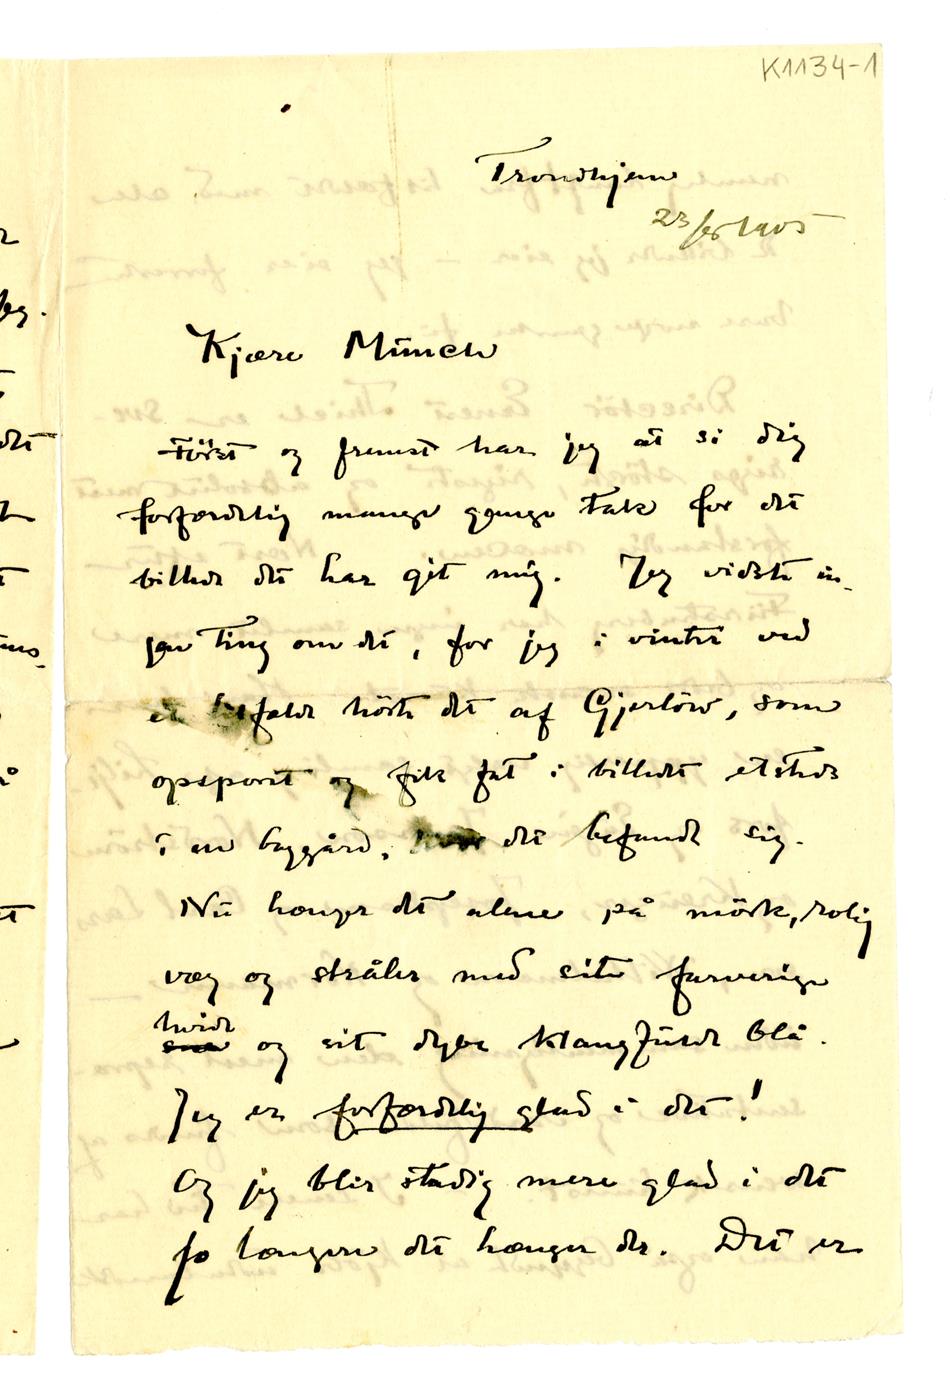 K1134-1
Trondhjem
23/ 1905
Kjære Munch
Först og fremst har jeg at si dig
forfærdelig mange gange tak for det
billede du har git mig. Jeg vidste in-
gen ting om det, for jeg i vinter ved
et tilfælde hörte det af Gjerlöw, som
opsporet og fik fat i billedet etsteds
i en baggård, hvor det befandt sig.
Nu hænger det alene på mörk, rolig
væg og stråler med sit farverige
hvide
og sit dybe klangfulde blå.
Jeg er forfærdelig glad i det!
Og jeg blir stadig mere glad i det
jo længere det hænger der. Det er